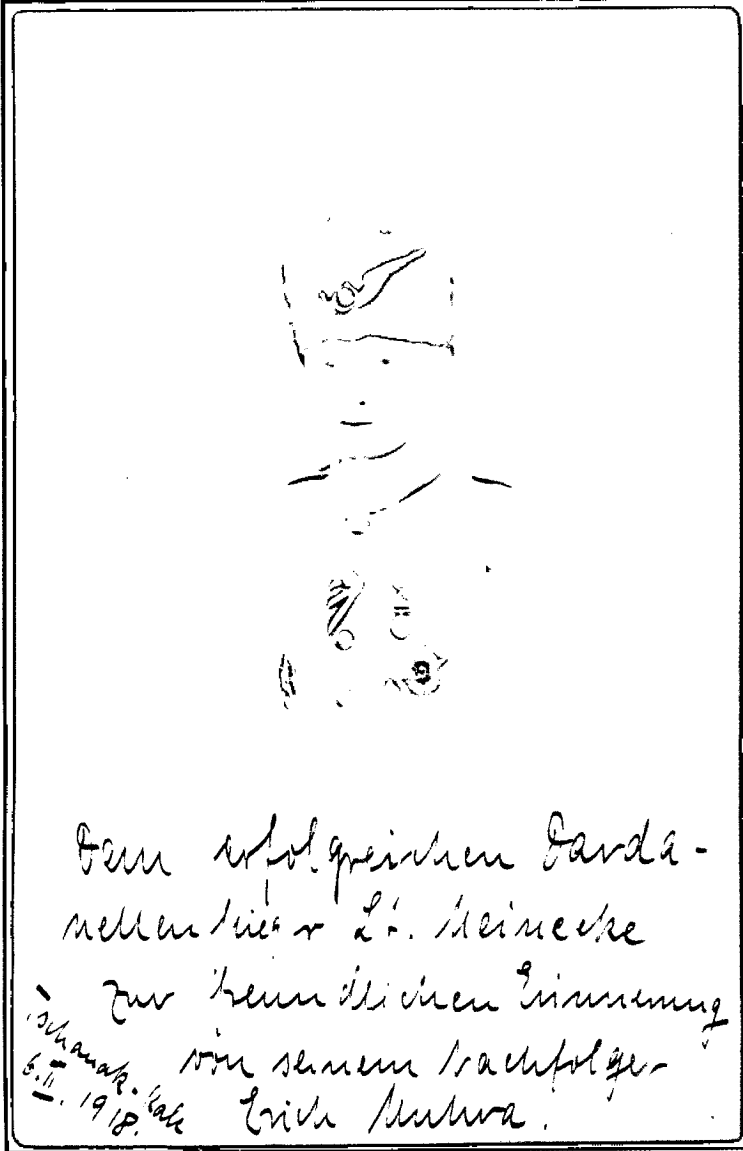 Dem erfolgreichen Darda-
nellenflieger Lt. Meinecke
zur freundlichen Erinnerung
von seinem Nachfolger
Erich
Tschanak. Kale
6.II. 1918.